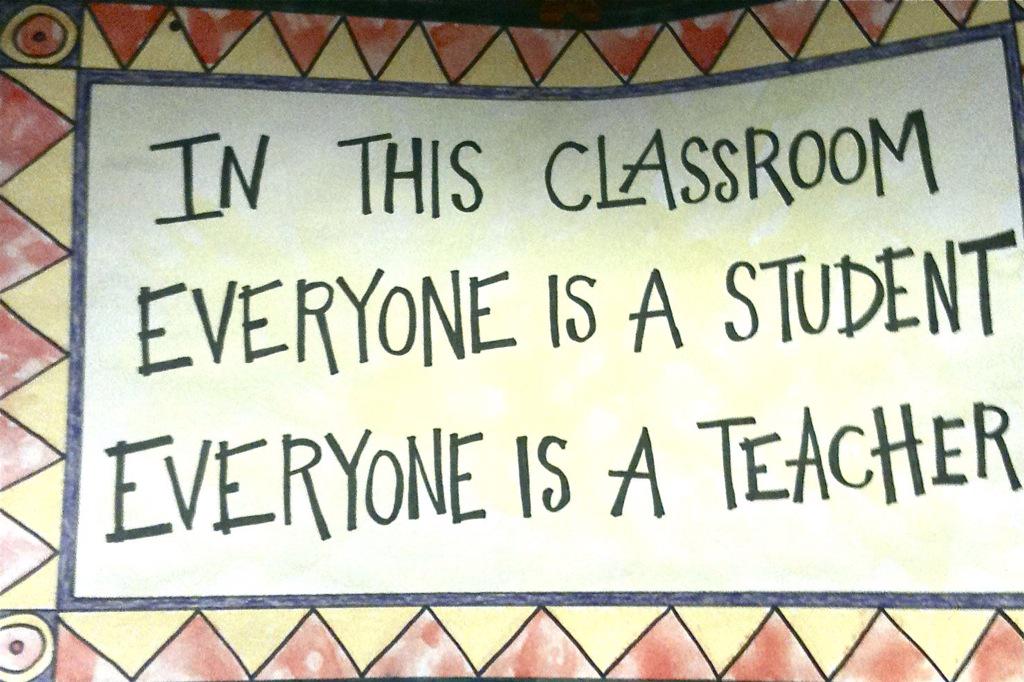 IN THIS CLASSROOM
EVERYONE IS A STUDENT
EVERYONE IS A TEACHER